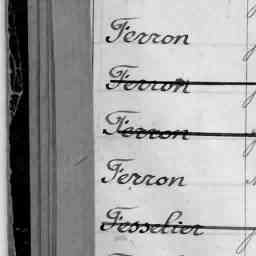 Ferron
Ferron
Ferron
Ferron
Fesselier